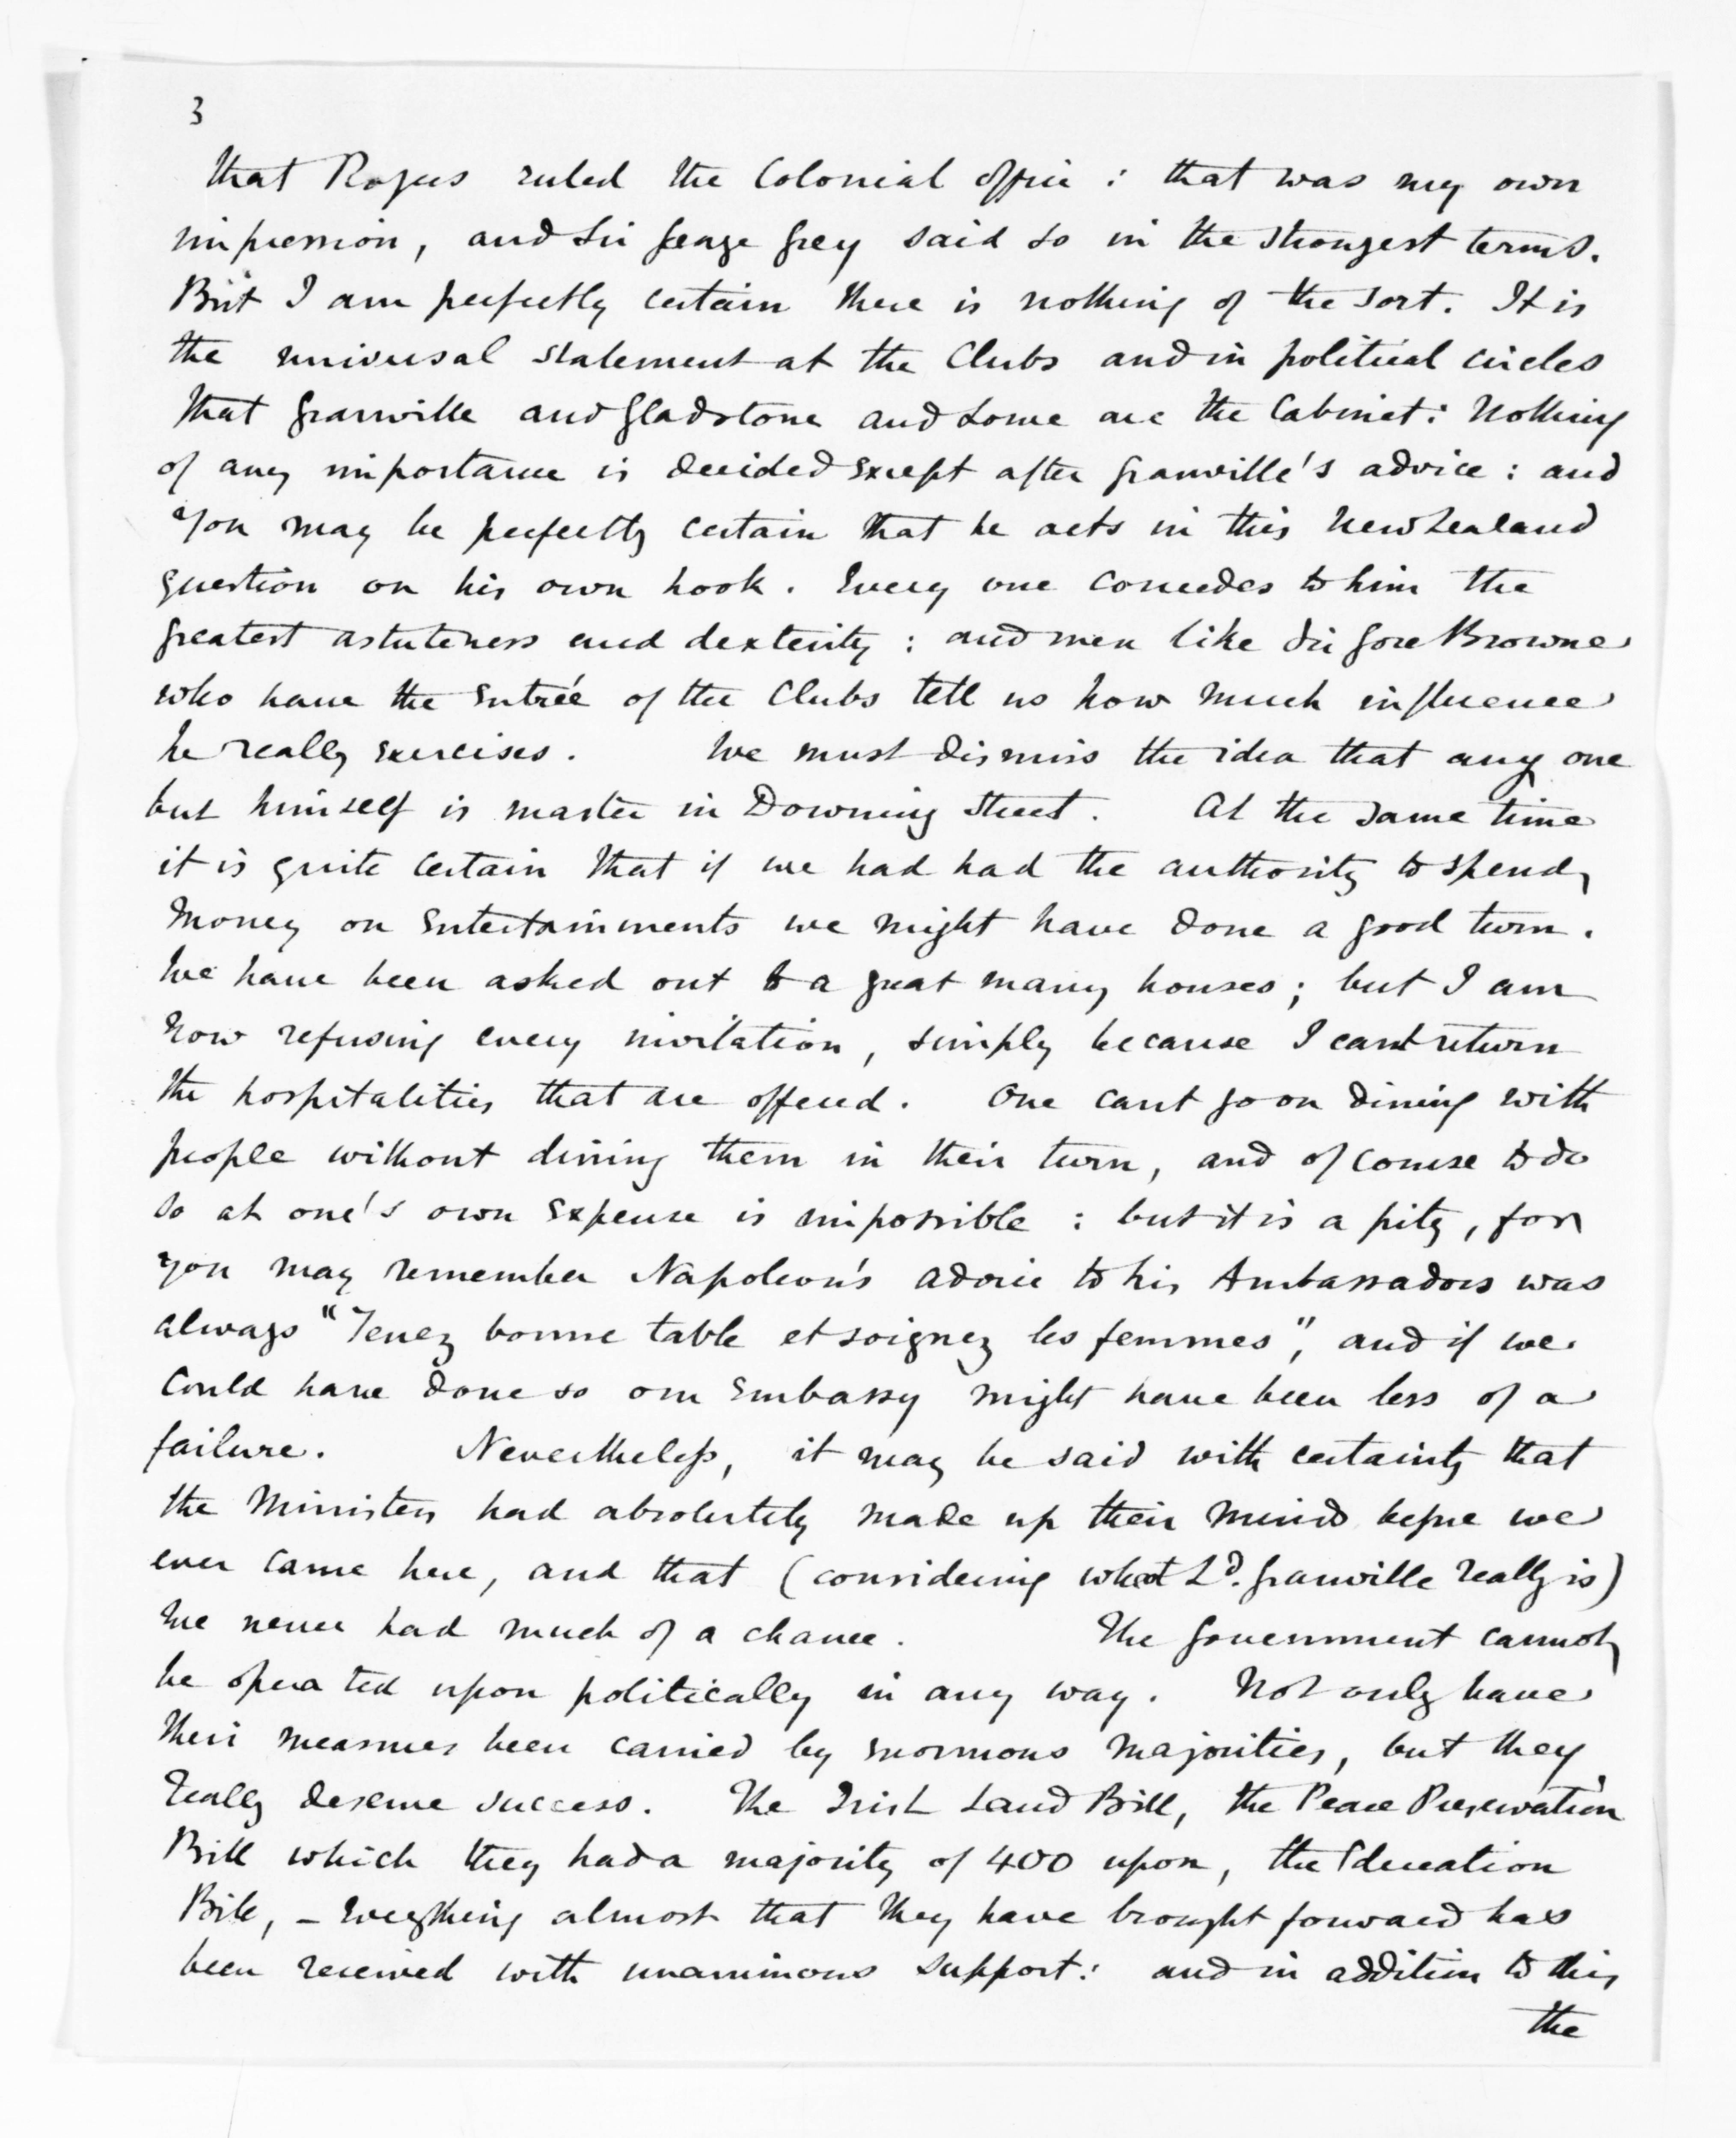 3
that Rogers ruled the Colonial Office : that was my own
impression, and Sir George Grey said so in the strongest terms.
But I am perfectly certain there is nothing of the sort. It is
the universal statement at the Clubs and in political circles
that Granville and Gladstone and Lowe are the Cabinet : nothing
of any importance is decided except after Granville's advice : and
you may be perfectly certain that he acts in this New Zealand
question on his own hook. Every one concedes to him the
greatest astuteness and dexterity : and men like Sir Gore Browne
who have the entrée of the Clubs tell us how much influence
he really exercises. We must dismiss the idea that any one
but himself is master in Downing Street. At the same time
it is quite certain that if we had had the authority to spend
money on entertainments we might have done a good turn.
We have been asked out to a great many houses; but I am
now refusing every invitation, simply because I cant return
the hospitalities that are offered. One cant go on dining with
people without dining them in their turn, and of course to do
so at one's own expense is impossible : but it is a pity, for
you may remember Napoleon's advice to his Ambassadors was
always "Tenez bonne table et soignez les femmes", and if we
could have done so our Embassy might have been less of a
failure. Nevertheless, it may be said with certainty that
the Ministers had absolutely made up their minds before we
ever came here, and that (considering what Ld. Granville really is)
we never had much of a chance. The Government cannot
be operated upon politically in any way. Not only have
their measures been carried by enormous majorities, but they
really deserve success. The Irish Land Bill, the Peace Preservation
Bill which they had a majority of 400 upon, the Education
Bill, – everything almost that they have brought forward has
been received with unanimous support : and in addition to this
the